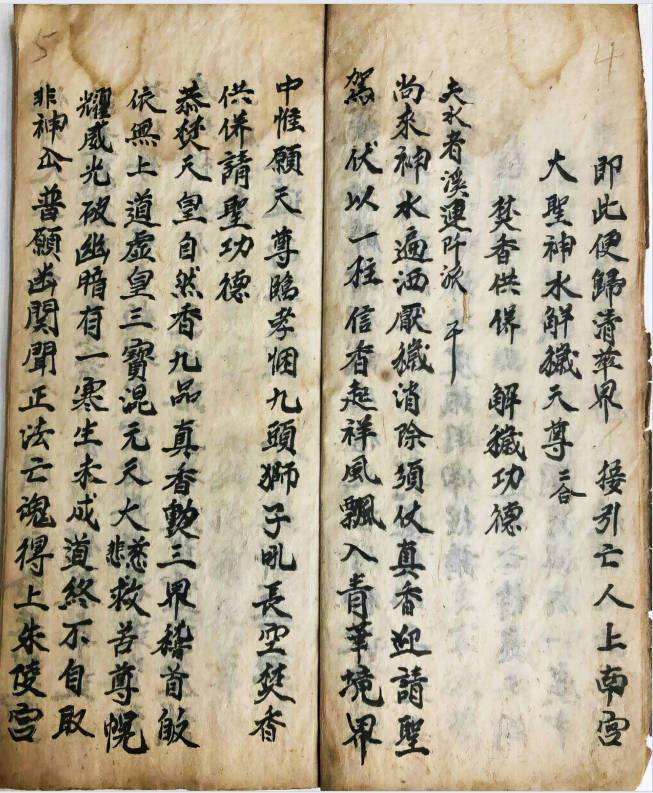 4
即此便歸清華界 接引亡人上南宮
大聖神水解穢天尊 二合
焚香供併 解穢功德
夫水者溪運阡派 于
尚來神水遍洒厭穢消除須仗真香迎請聖
駕 伏以一炷信香起祥風飄入青華境界
5
中惟願天尊臨孝悃九頭獅子吼長空焚香
供併請聖功德
恭焚天皇自然香九品真香動三界稽首皈
依無上道虛皇三寶混元天大慈悲救苦尊幌
耀威光破幽暗有一寒生未成道終不自取
非神公普願幽関聞正法亡魂得上朱陵宮